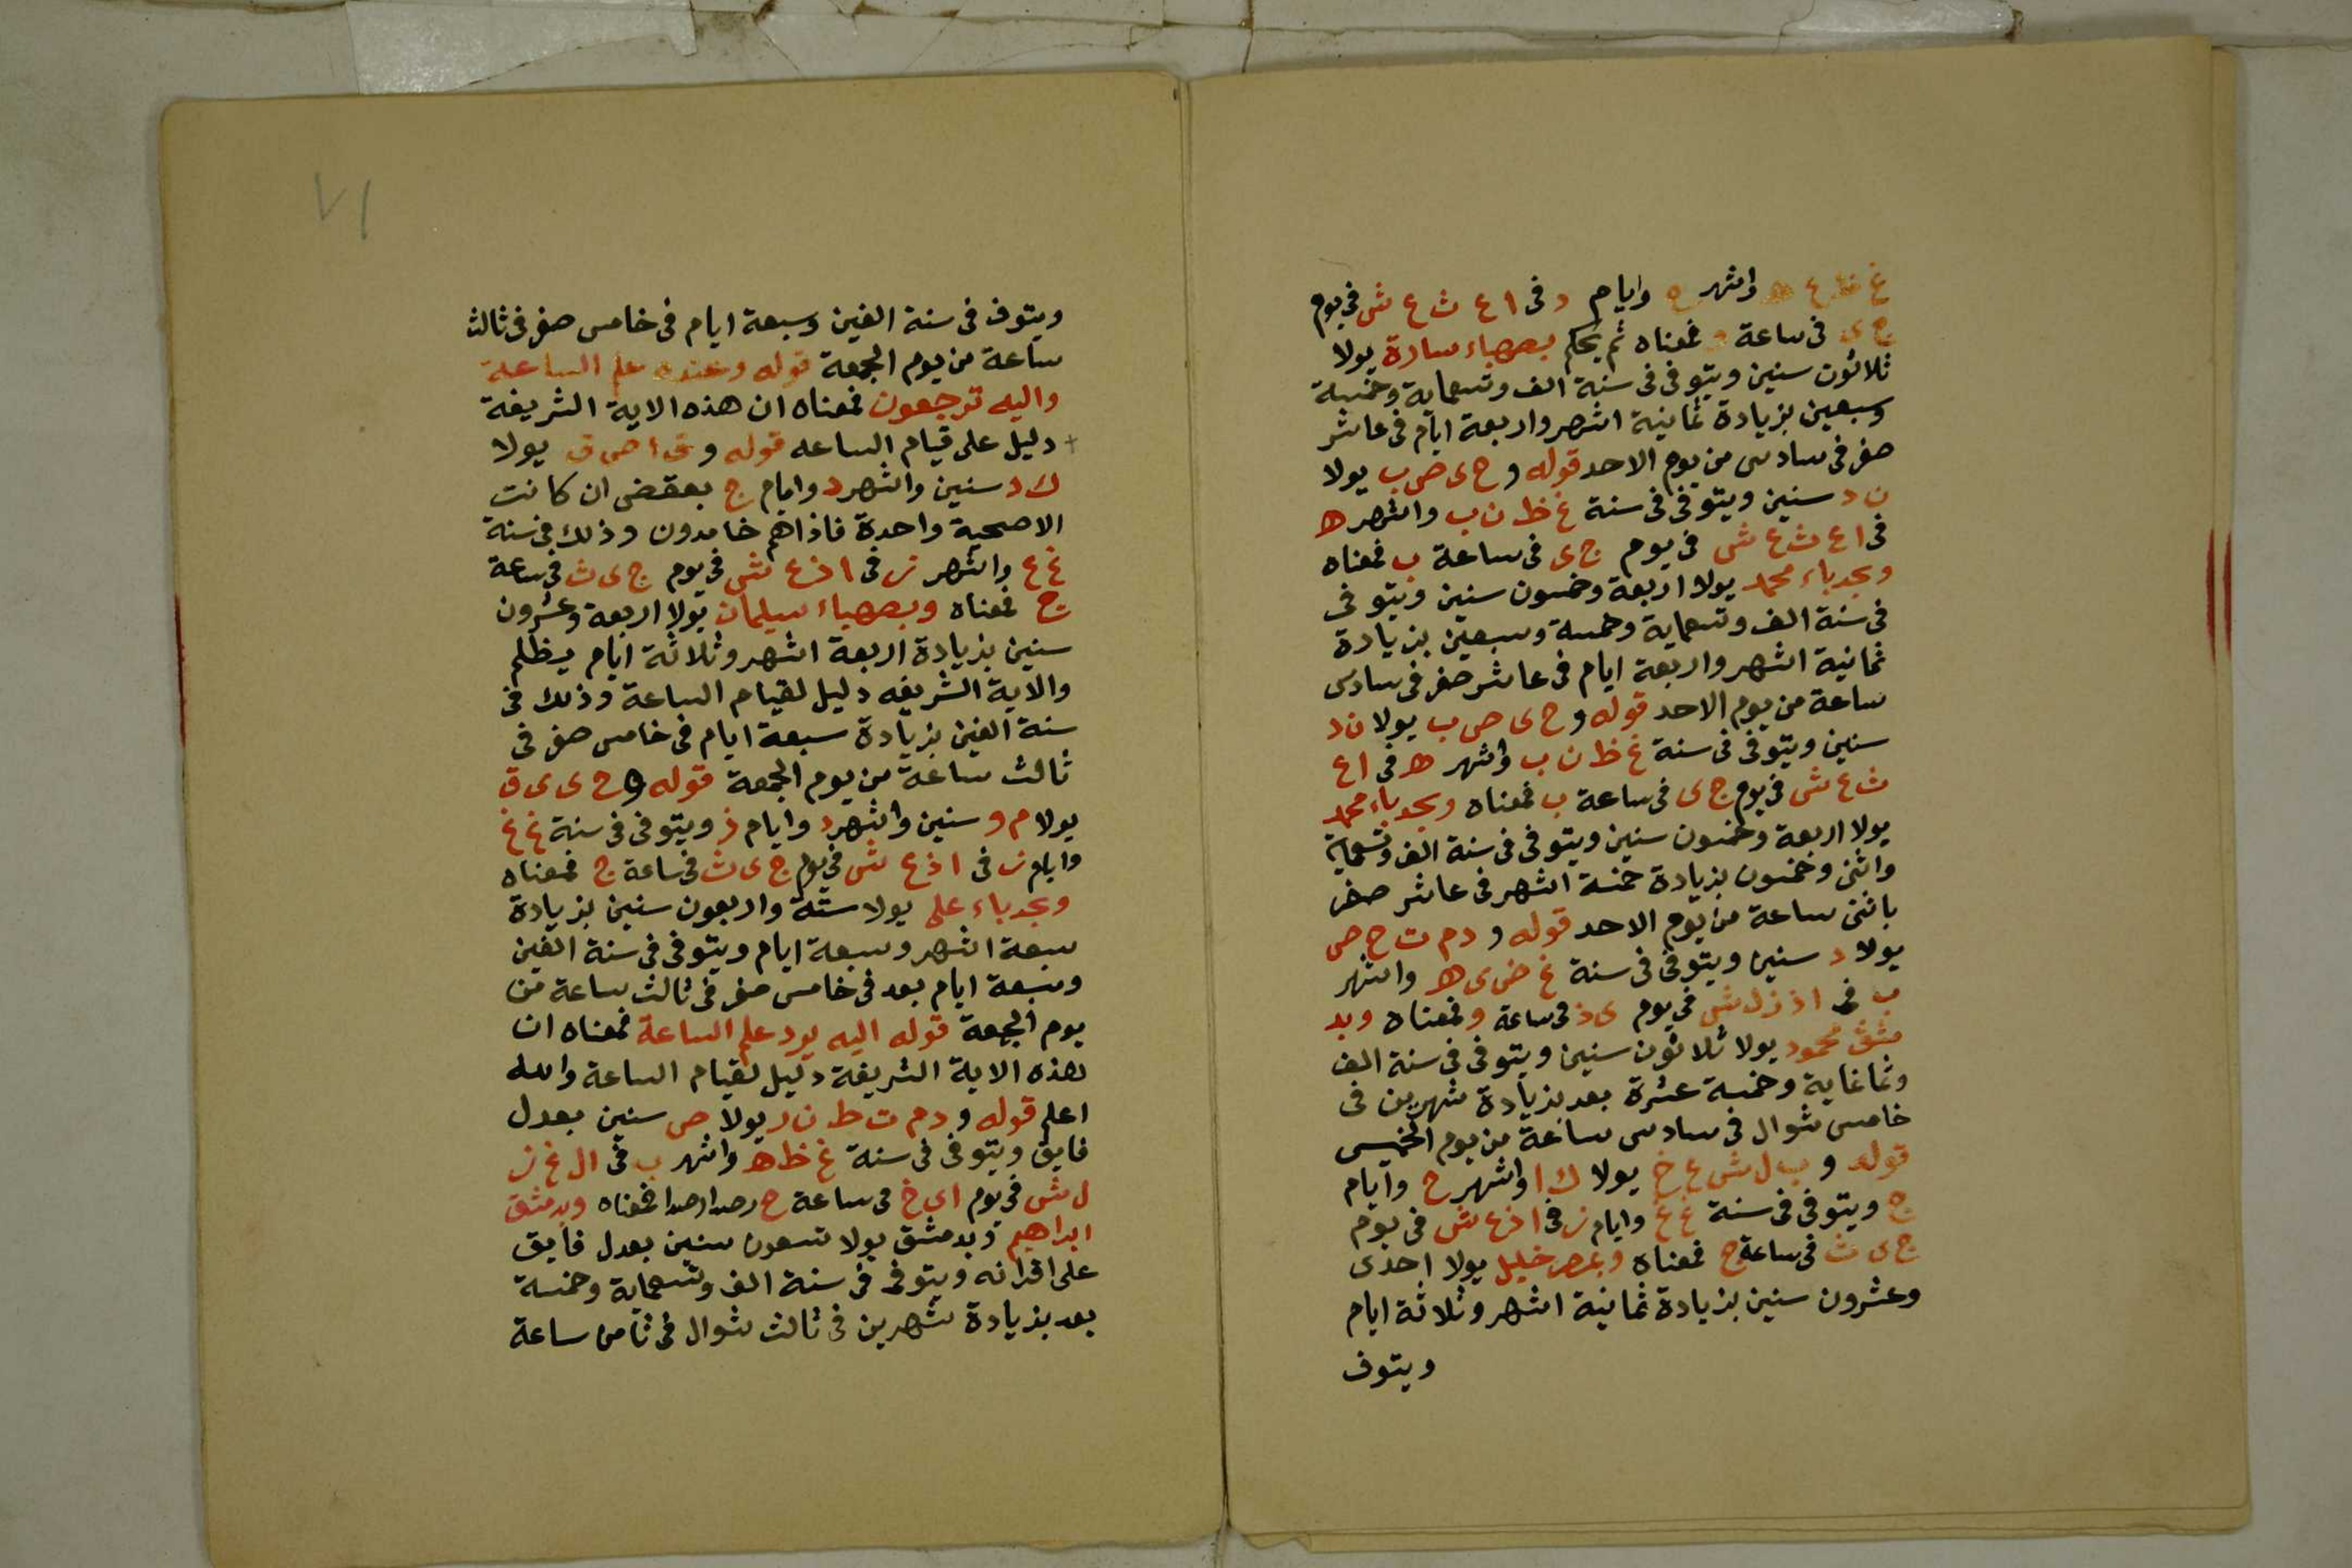 غ ظ ع ه واشهر ح وايام د فى ا ع ث ع ش فى يوم
ج ى فى ساعة و فمعناه ثم يحكم بصهباء سارة يولا
ثلاثون سنين ويتوفى فى سنة الف وتسعماية وخمسة
وسبعين بزيادة ثمانية اشهر واربعة ايام فى عاشر
صفر فى سادس من يوم الاحد قوله و ح ى ص ب يولا
ن د سنين ويتوفى فى سنة غ ظ ن ب واشهر ه
فى ا ع ث ع ش فى يوم ج ى فى ساعة ب فمعناه
وبحدباء محمد يولا اربعة وخمسون سنين ويتوفى
فى سنة الف وتسعماية وخمسة وسبعين بزيادة
ثمانية اشهر واربعة ايام فى عاشر صفر فى سادس
ساعة من يوم الاحد قوله و ح ى ص ب يولا ن د
سنين ويتوفى فى سنة غ ظ ن ب واشهر ه فى ا ع
ث ع ش فى يوم ج ى فى ساعة ب فمعناه وبحدباء محمد
يولا اربعة وخمسون سنين ويتوفى فى سنة الف وتسعماية
واثنى وخمسون بزيادة خمسة اشهر فى عاشر صفر
باثنى ساعة من يوم الاحد قوله و د م ت ح ص
يولا د سنين ويتوفى فى سنة غ ض ى ه واشهر
ب فى ا ذ ز ل ش فى يوم ى ذ فى ساعة و فمعناه وبد
مشق محمود يولا ثلاثون سنين ويتوفى فى سنة الف
وثماغاية وخمسة عشرة بعد بزيادة شهرين فى
خامس شوال فى سادس ساعة من يوم الخميس
قوله و ب ل ش ع خ يولا ك ا واشهر ح وايام
ج ويتوفى فى سنة غ غ وايام ز فى ا ذ ع ش فى يوم
ج ى ث فى ساعة ج فمعناه وبمصر خليل يولا احدى
وعشرون سنين بزيادة ثمانية اشهر وثلاثة ايام
ويتوف
٧١
ويتوف فى سنة الفين وسبعة ايام فى خامس صفر فى ثالث
ساعة من يوم الجمعة قوله وعنده علم الساعة
واليه ترجعون فمعناه ان هذه الاية الشريفة
دليل على قيام الساعه قوله و ق ا ص ق يولا
ك د سنين واشهر د وايام ج بعقض ان كانت
الاصحية واحدة فاذاهم خامدون وذلك فى سنة
غ غ واشهر ز فى ا ذ ع ش فى يوم ج ى ث فى ساعة
ج فمعناه وبصهباء سيلمان يولا اربعة وعشرون
سنين بزيادة اربعة اشهر وثلاثة ايام يظلم
والاية الشريفه دليل لقيام الساعة وذلك فى
سنة الفين بزيادة سبعة ايام فى خامس صفر فى
ثالث ساعة من يوم الجمعة قوله و ح ى ى ق
يولا م و سنين واشهر د وايام ز ويتوفى فى سنة غ غ
وايام ز فى ا ذ ع ش فى يوم ج ى ث فى ساعة ج فمعناه
وبحدباء على يولا ستة واربعون سنين بزيادة
سبعة اشهر وسبعة ايام ويتوفى فى سنة الفين
وسبعة ايام بعد فى خامس صفر فى ثالث ساعة من
يوم الجمعة قوله اليه يرد علم الساعة فمعناه ان
هذه الاية الشريفة دليل لقيام الساعة والله
اعلم قوله و د م ت ط ن ر يولا ص سنين بعدل
فايق ويتوفى فى سنة غ ظ ه واشهر ب فى ال غ ز
ل ش فى يوم اى خ فى ساعة ح فمعناه وبدمشق
ابراهيم وبدمشق يولا تسعون سنين بعدل فايق
على اقرانه ويتوفى فى سنة الف وتسعماية وخمسة
بعد بزيادة شهرين فى ثالث شوال فى ثامن ساعة